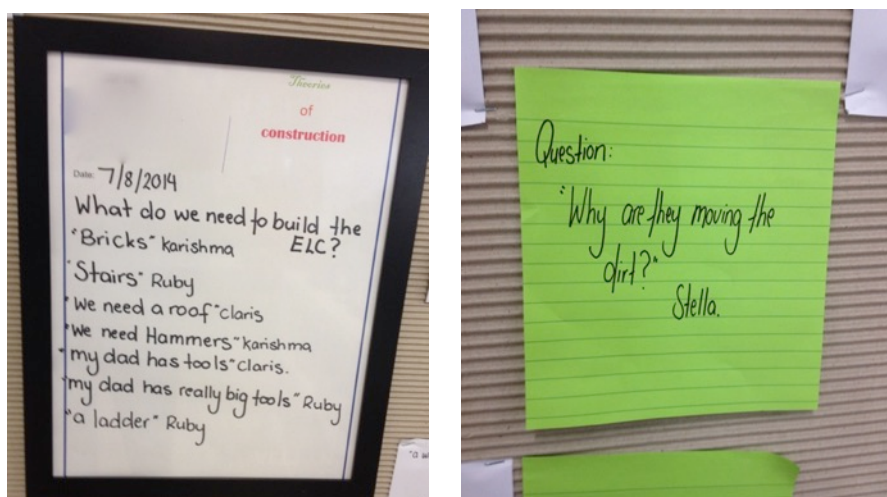 Theories
of
construction
Date: 7/8/2014
What do we need to build the
ELC?
"Bricks" Karishma
"Stairs" Ruby
"we need a roof" claris
"we need Hammers" karishma
"my dad has tools" claris.
"my dad has really big tools" Ruby
"a ladder" Ruby
"a w
Question:
"Why are they moving the
dirt?"
Stella.